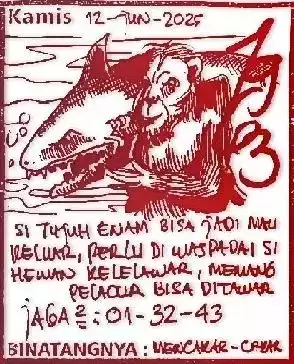 Kamis 12-JUN-2025
SI TUJUH ENAM BISA JADI MAU
KELUAR, PERLU DI WASPADAI SI
HEWAN KELELAWAR, MEMANG
PELACUR BISA DITAWAR
JAGA2 : 01-32-43
BINATANGNYA : MENCAKAR-CAKAR